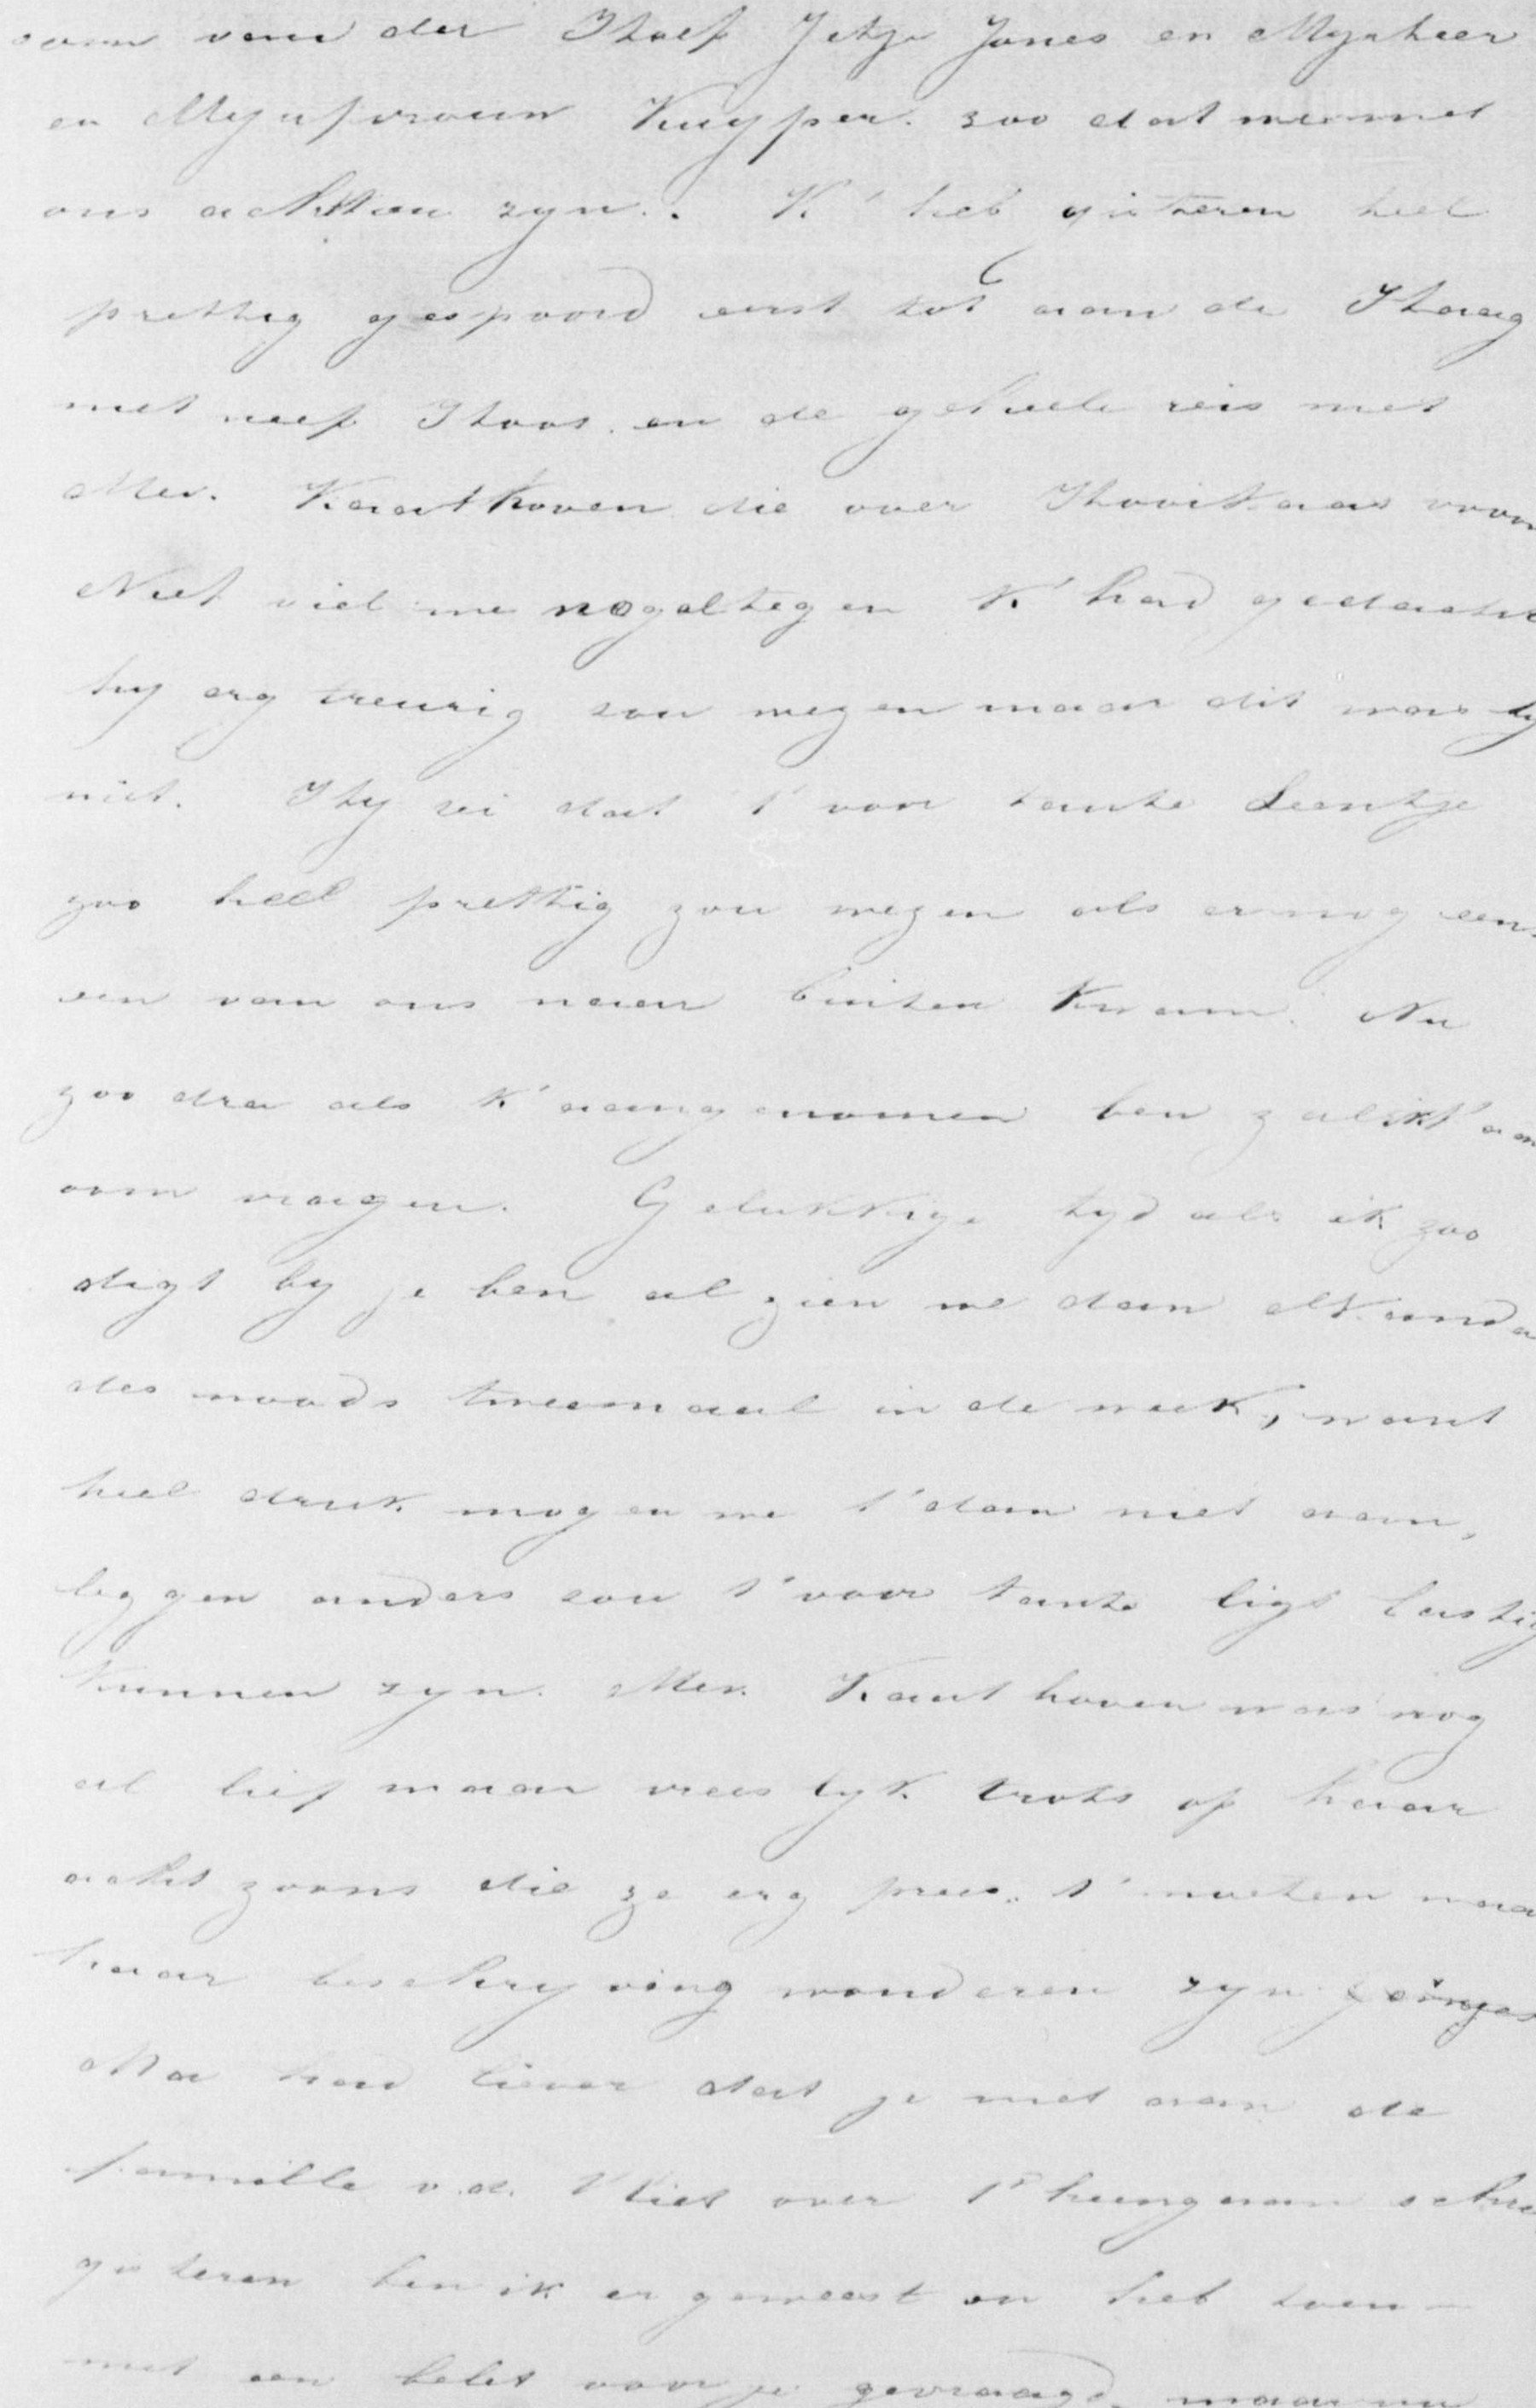 oom van der Hoef Jetje Jones en Mynheer
en Mejufvrouw Kuyper. zoo dat we met
ons achtten zyn. K' heb gisteren heel
prettig gespoord eerst tot aan de Haag
met neef Thoos. en de geheele reis met
Mev. Kanthoven die over
Neef viel me nogal tegen K' had gedacht
hy erg treurig zou wezen maar dit was hy
niet. Hy zei dat t' voor tante Leentje
zoo heel prettig zou wezen als er nog eens
een van ons naar buiten Kwam. Nu
zoo dra als K' aangenomen ben zal ik t' aan
oom vragen. Gelukkige tyd als ik zoo
digt by je ben al zien we dan elkander
des noods tweemaal in de week, want
heel druk mogen we t' dan niet aan,
leggen anders zou t' voor tante ligt lastig
Kunnen zyn. Mev. Kanthoven was nog
al lief maar vreeslyk trots op haar
acht zoons die ze erg prees. t' moeten naar
haar beschryving wonderen zyn
Ma had liever dat je niet aan de
familie v.d. Vliet over
gisteren ben ik er geweest en heb toen
met een belet voor je gevraagd, maar nu